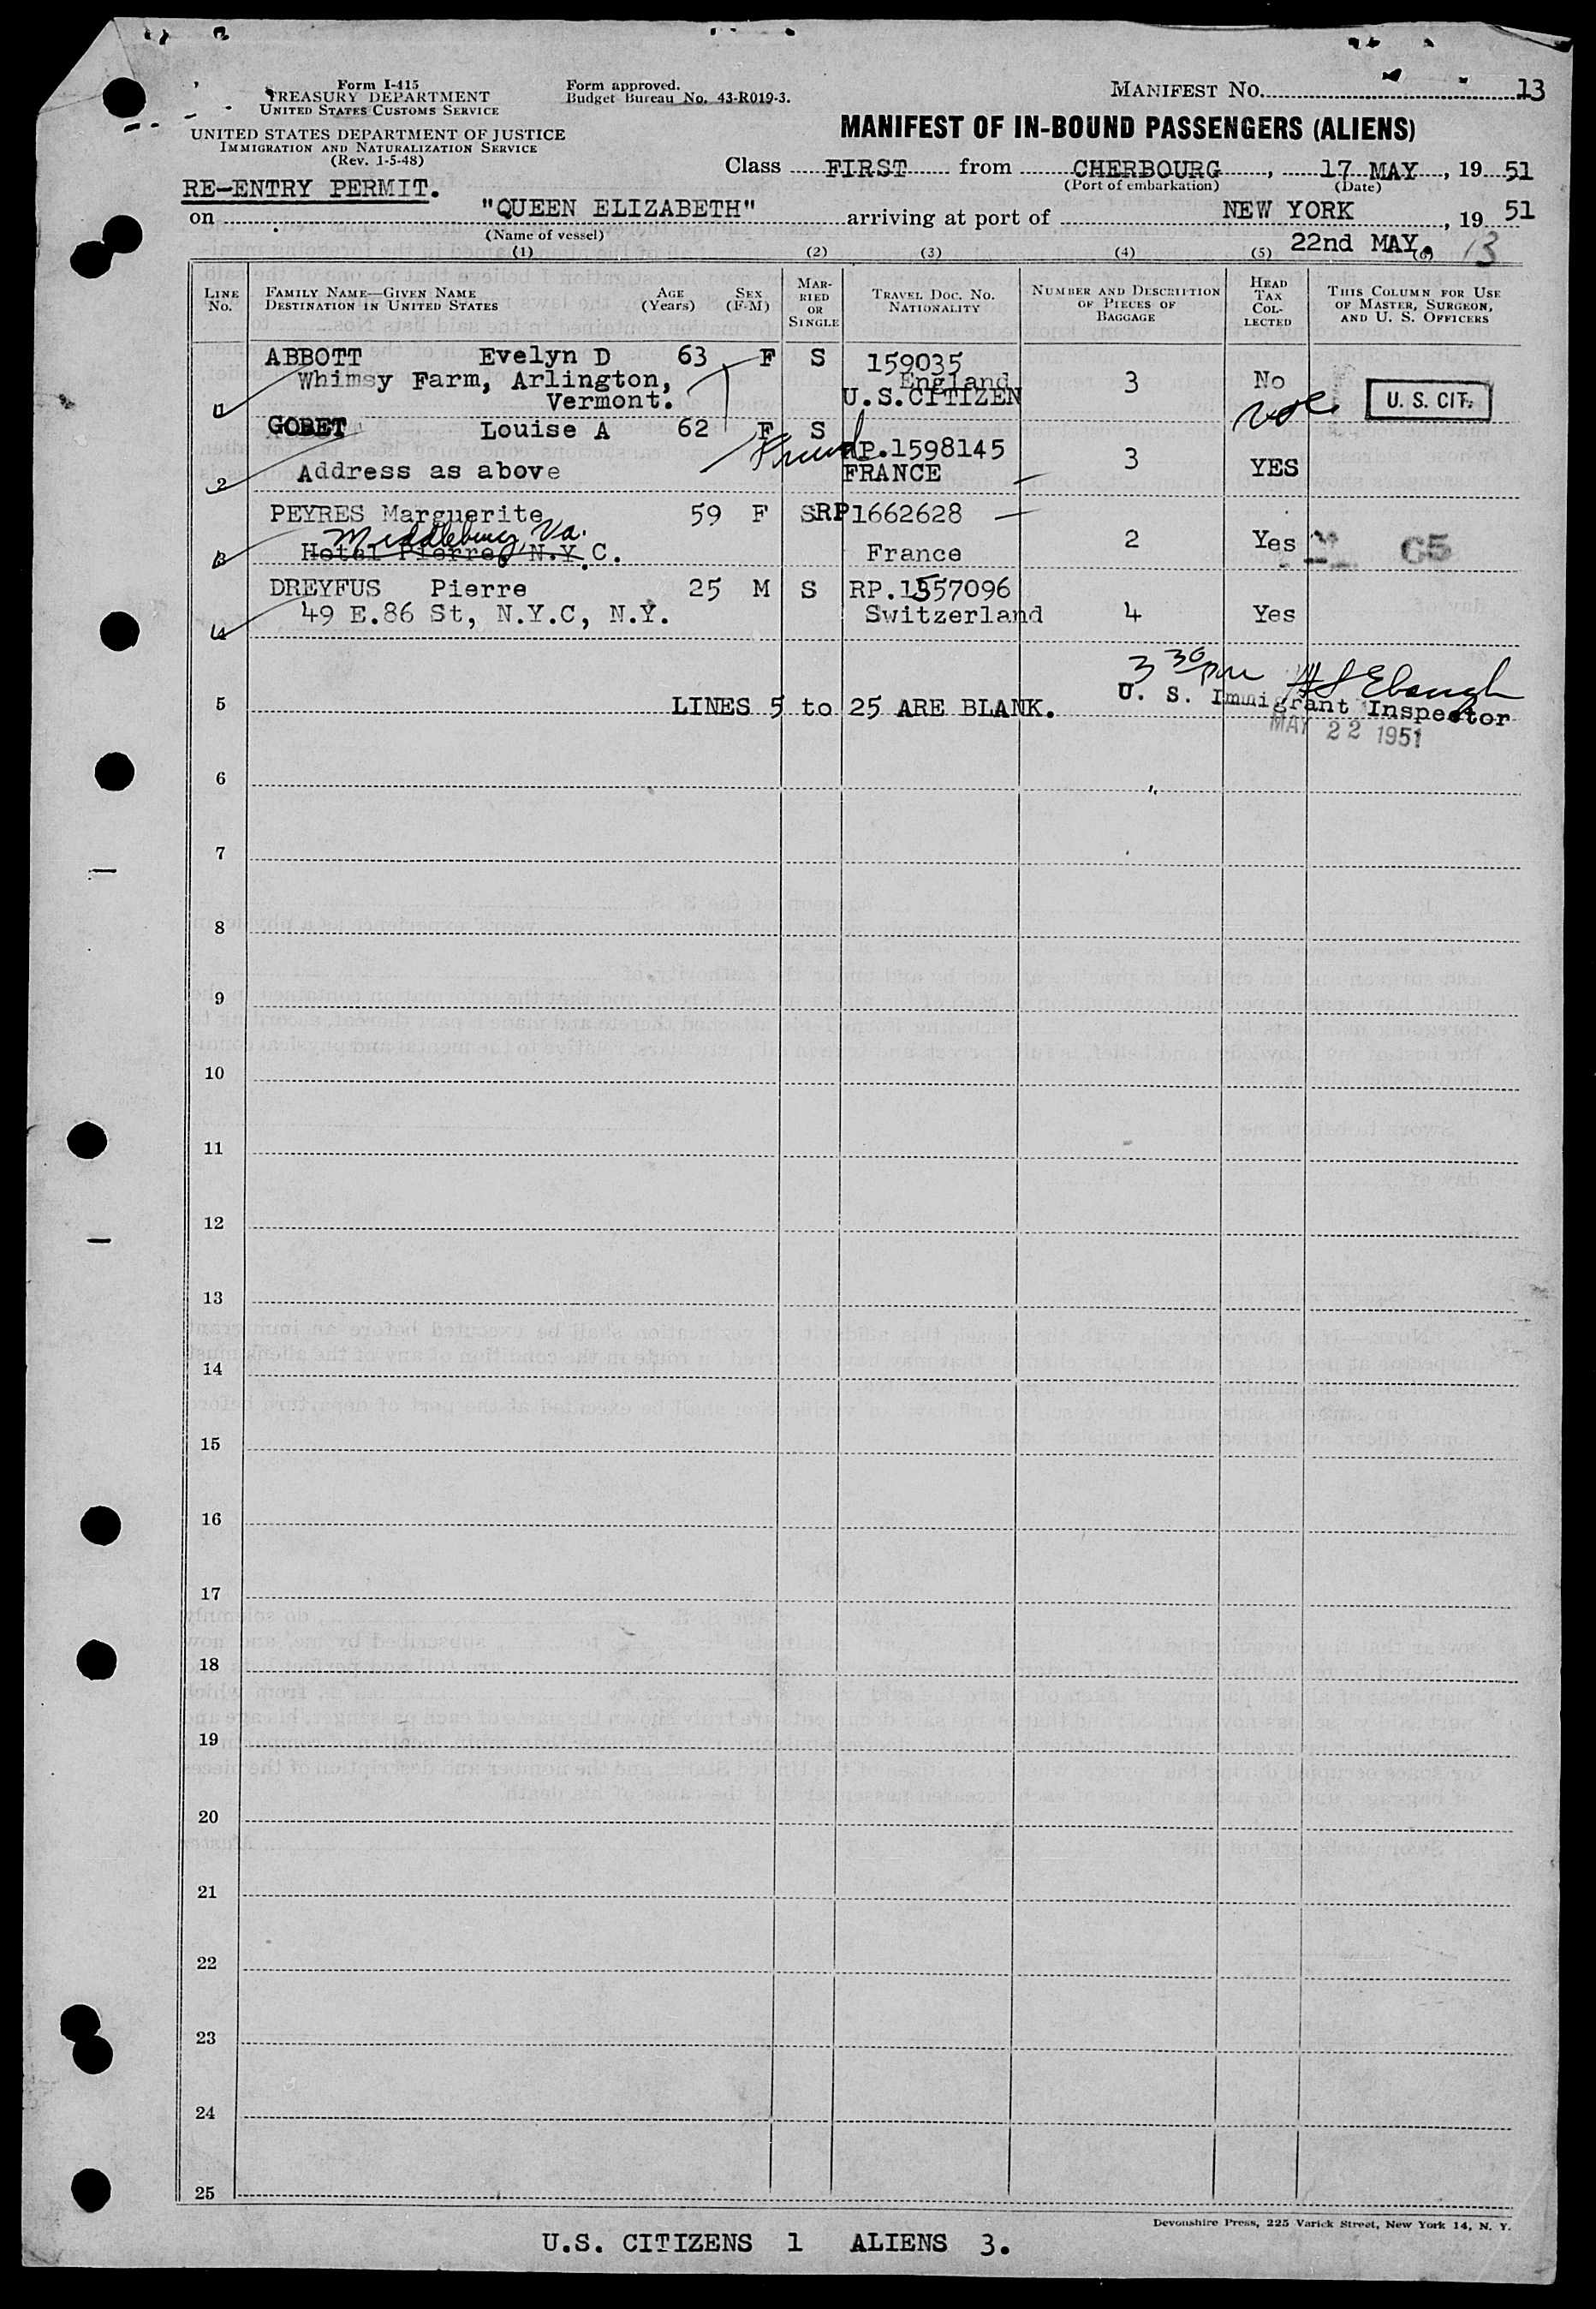 Form I-415
TREASURY DEPARTMENT
UNITED STATES CUSTOMS SERVICE
UNITED STATES DEPARTMENT OF JUSTICE
IMMIGRATION AND NATURALIZATION SERVICE
(Rev. 1-5-48)
Form approved.
Budget Bureau No. 43-R019-3.
MANIFEST NO. 13
MANIFEST OF IN-BOUND PASSENGERS (ALIENS)
Class FIRST from CHERBOURG, 17 MAY, 1951
(Port of embarkation) (Date)
RE-ENTRY PERMIT.
on "QUEEN ELIZABETH" arriving at port of NEW YORK, 19 51
(Name of vessel)
22nd MAY. 13
(1) (2) (3) (4) (5) (6)
LINE No. FAMILY NAME—GIVEN NAME DESTINATION IN UNITED STATES AGE (Years) SEX (F-M) MARRIED OR SINGLE TRAVEL DOC. NO. NATIONALITY NUMBER AND DESCRIPTION OF PIECES OF BAGGAGE HEAD TAX COLLECTED THIS COLUMN FOR USE OF MASTER, SURGEON, AND U. S. OFFICERS
ABBOTT Evelyn D 63 F S 159035
Whimsy Farm, Arlington, England 3 No
1 Vermont. U.S.CITIZEN U. S. CIT.
GOBET Louise A 62 F S
RP.1598145 3
2 Address as above FRANCE YES
PEYRES Marguerite 59 F S RP1662628
Middleburg, Va.
3 Hotel Pierre, N.Y.C. France 2 Yes 65
DREYFUS Pierre 25 M S RP.1557096
4 49 E.86 St, N.Y.C, N.Y. Switzerland 4 Yes
3 30 pm
5 LINES 5 to 25 ARE BLANK. U. S. Immigrant Inspector
MAY 22 1951
6
7
8
9
10
11
12
13
14
15
16
17
18
19
20
21
22
23
24
25
Devonshire Press, 225 Varick Street, New York 14, N. Y.
U.S. CITIZENS 1 ALIENS 3.